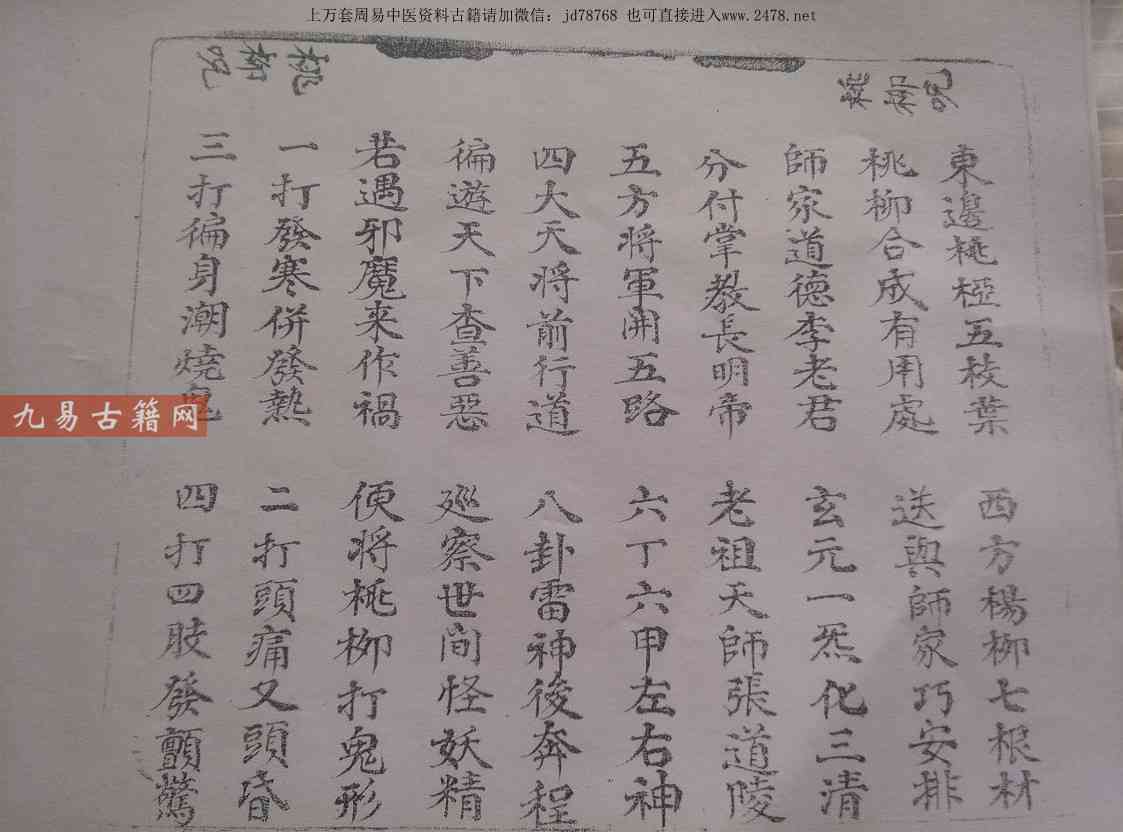 上万套周易中医资料古籍请加微信：jd78768 也可直接进入www.2478.net
東邊桃椏五枝葉
西方楊柳七根材
桃柳合成有用處
送與師家巧安排
師家道德李老君
玄元一炁化三清
分付掌教長明帝
老祖天師張道陵
五方将軍開五路
六丁六甲左右神
四大天将前行道
八卦雷神後奔程
徧遊天下查善惡
廵察世间怪妖精
若遇邪魔来作禍
便将桃柳打鬼形
一打發寒併發熱
二打頭痛又頭昏
三打徧身潮燒
四打四肢發顫驚
桃
柳
咒
九易古籍网